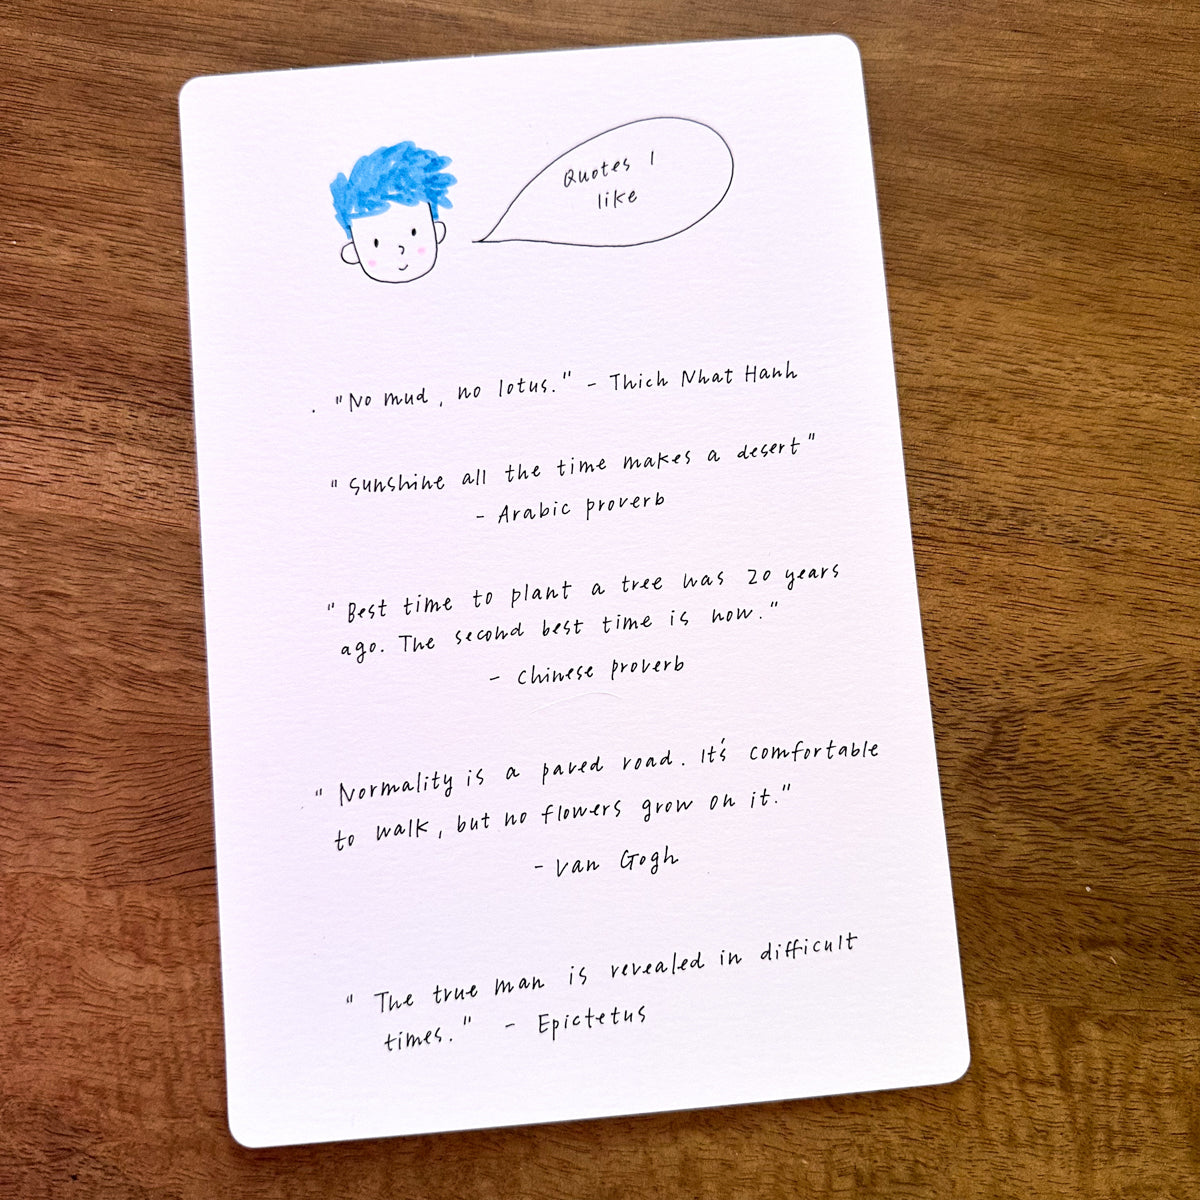 Quotes I
like
. "No mud, no lotus." - Thich Nhat Hanh
"Sunshine all the time makes a desert"
- Arabic proverb
"Best time to plant a tree was 20 years
ago. The second best time is now."
- Chinese proverb
"Normality is a paved road. It's comfortable
to walk, but no flowers grow on it."
- Van Gogh
"The true man is revealed in difficult
times." - Epictetus